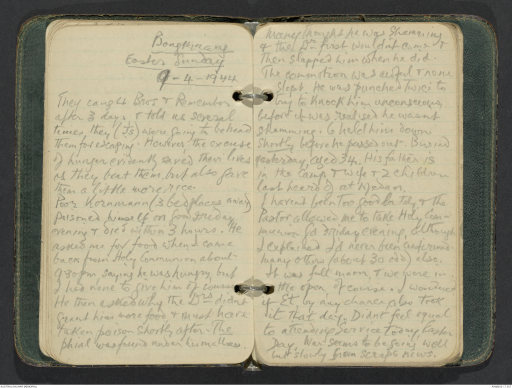 Bongkwang
Easter Sunday
9-4-1944
They caught Bros & Remembor
after 3 days, & told us several
times they (Js) were going to behead
them for escaping. However the excuse
of hunger evidently saved their lives
as they beat them, but also gave
them a little more rice.
Poor Hornmann (3 bedplaces away)
poisoned himself on Good Friday
evening & died within 3 hours. He
asked me for food when I came
back from Holy Communion about
9.30pm saying he was hungry but
I had none to give him of course.
He then asked why the Drs didn't
grant him more food & must have
taken poison shortly after. The
phial was found under his mattress.
Many thought he was shamming
& the Dr first wouldn't come &
then slapped him when he did.
The commotion was awful & none
slept. He was punched twice to
try to knock him unconscious,
before it was realised he wasnt
shamming. 6 held him down
shortly before he passed out. Buried
yesterday, aged 34. His father is
in the camp & wife & 2 children
last heard of at Medan.
I haven't been too good lately & the
Pastor allowed me to take Holy Com-
munion Good Friday evening, although
I explained I'd never been confirmed.
Many others (about 30 odd) also.
It was full moon, & we were in
the open of course. I wondered
if El by any chance also took
it that day. Didnt feel equal
to attending service today Easter
Day. War seems to be going well
but slowly from scraps news.